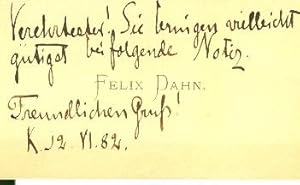 Verehrtester! Sie bringen vielleicht
gütigst beifolgende Notiz.
FELIX DAHN.
Freundlichen Gruß!
K. 12. VI. 82.